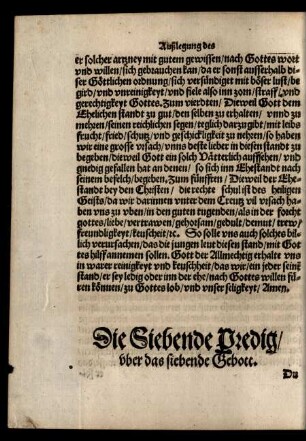 Außlegung des
er solcher artzney mit gutem gewissen / nach Gottes wort
vnd willen / sich gebrauchen kan / da er sonst ausserhalb di-
ser Göttlichen ordnung / sich versündiget mit böser lust / be
gird / vnd vnreinigkeyt / vnd fiele also inn zorn / straff / vnd
gerechtigkeyt Gottes. Zum vierdten / Dieweil Gott dem
Ehelichen standt zu gut / den selben zu erhalten / vnnd zu
mehren / seinen reichlichen segen / teglich darzu gibt / mit leibs
frucht / fried / schutz / vnd geschickligkeit zu nehren / so haben
wir eine grosse vrsach / vnns deste lieber in diesen standt zu
begeben / dieweil Gott ein solch Vätterlich auffsehen / vnd
gnedig gefallen hat an denen / so sich inn Ehestandt nach
seinem befelch / begeben. Zum fünfften / Dieweil der Ehe-
standt bey den Christen / die rechte schul ist des heiligen
Geists / da wir darinnen vnter dem Creutz vil vrsach ha-
ben vns zu vben / in den guten tugenden / als in der forcht
gottes / liebe / vertrawen / gehorsam / gedult / demut / trew /
freundligkeyt / keuscheit / ꝛc. So solle vns auch solches bil-
lich verursachen / das die jungen leut disen stand / mit Got
tes hilff annemen sollen. Gott der Allmechtig erhalt vns
in warer reinigkeyt vnd keuschheit / das wir / ein jeder seinẽ
stand / er sey ledig oder inn der ehe / nach Gottes willen fü-
ren können / zu Gottes lob / vnd vnser seligkeyt / Amen.
Die Siebende Predig /
vber das siebende Gebott.
Du